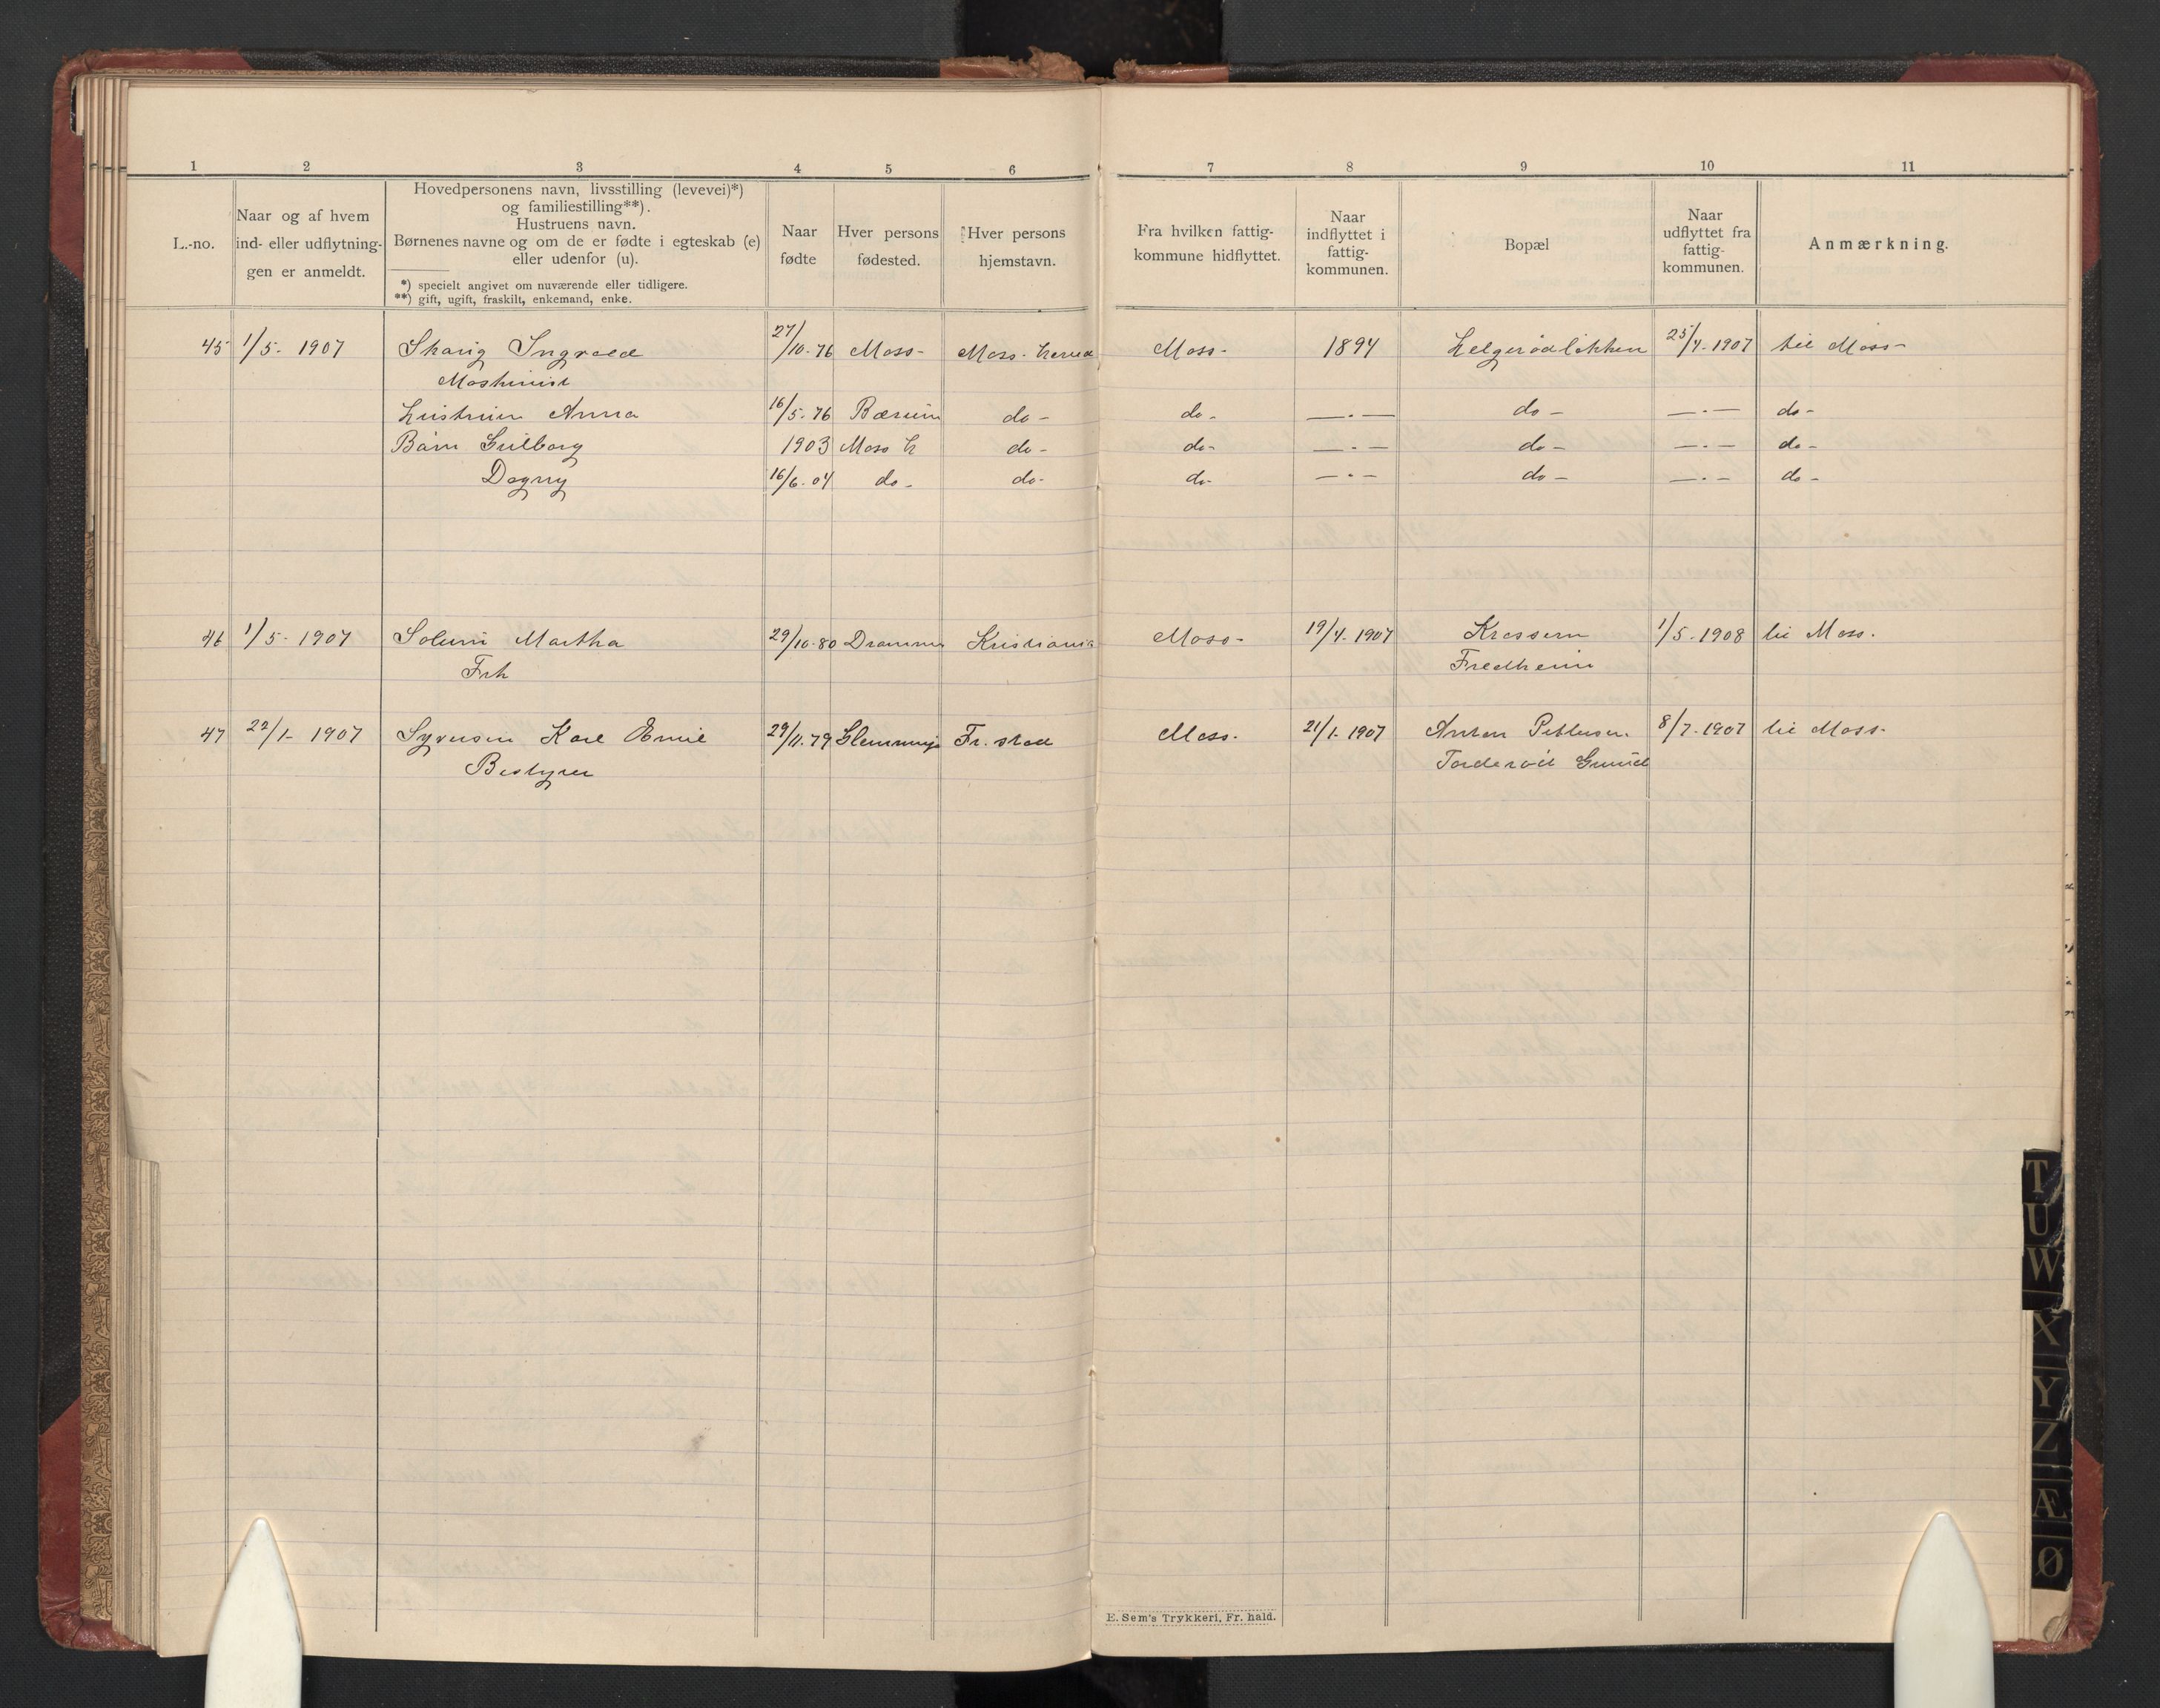 1 2 3 4 5 6 7 8 9 10 11
L.-no.
Naar og af hvem
ind- eller udflytnin-
gen er anmeldt.
Hovedpersonens navn, livsstilling (levevei)*)
og familiestilling**).
Hustruens navn.
Børnenes navne og om de er fødte i egteskab (e)
eller udenfor (u).
*) specielt angivet om nuværende eller tidligere.
**) gift, ugift, fraskilt, enkemand, enke.
Naar
fødte
Hver persons
fødested.
Hver persons
hjemstavn.
Fra hvilken fattig-
kommune hidflyttet.
Naar
indflyttet i
fattig-
kommunen.
Bopæl
Naar
udflyttet fra
fattig-
kommunen.
Anmærkning.
45 1/5- 1907 Skarig Ingvald 27/10-76 Moss- Moss- herred Moss- 1894 Helgerødløkken 25/4-1907 til Moss-
Maskinist
Hustruen Anna 16/5-76 Bærum do- do- —·— do- —·— do-
Børn Gulborg 1903 Moss h do- do- —·— do- —·— do-
Dagny 16/6-04 do- do- do- —·— do- —·— do-
46 1/5- 1907 Solum Martha 29/10-80 Drammen Kristiania Moss- 19/4-1907 Krossern 1/5-1908 til Moss.
Frk Fredheim
47 22/1- 1907 Syversen Karl Emil 29/11-79 Glemminge Fr. stad Moss- 21/1-1907 Anton Pettersen 8/7-1907 til Moss-
Bestyrer Torderød Grund
E. Sem's Trykkeri, Fr. hald.
T
U
W
X
Y
Z
Æ
Ø